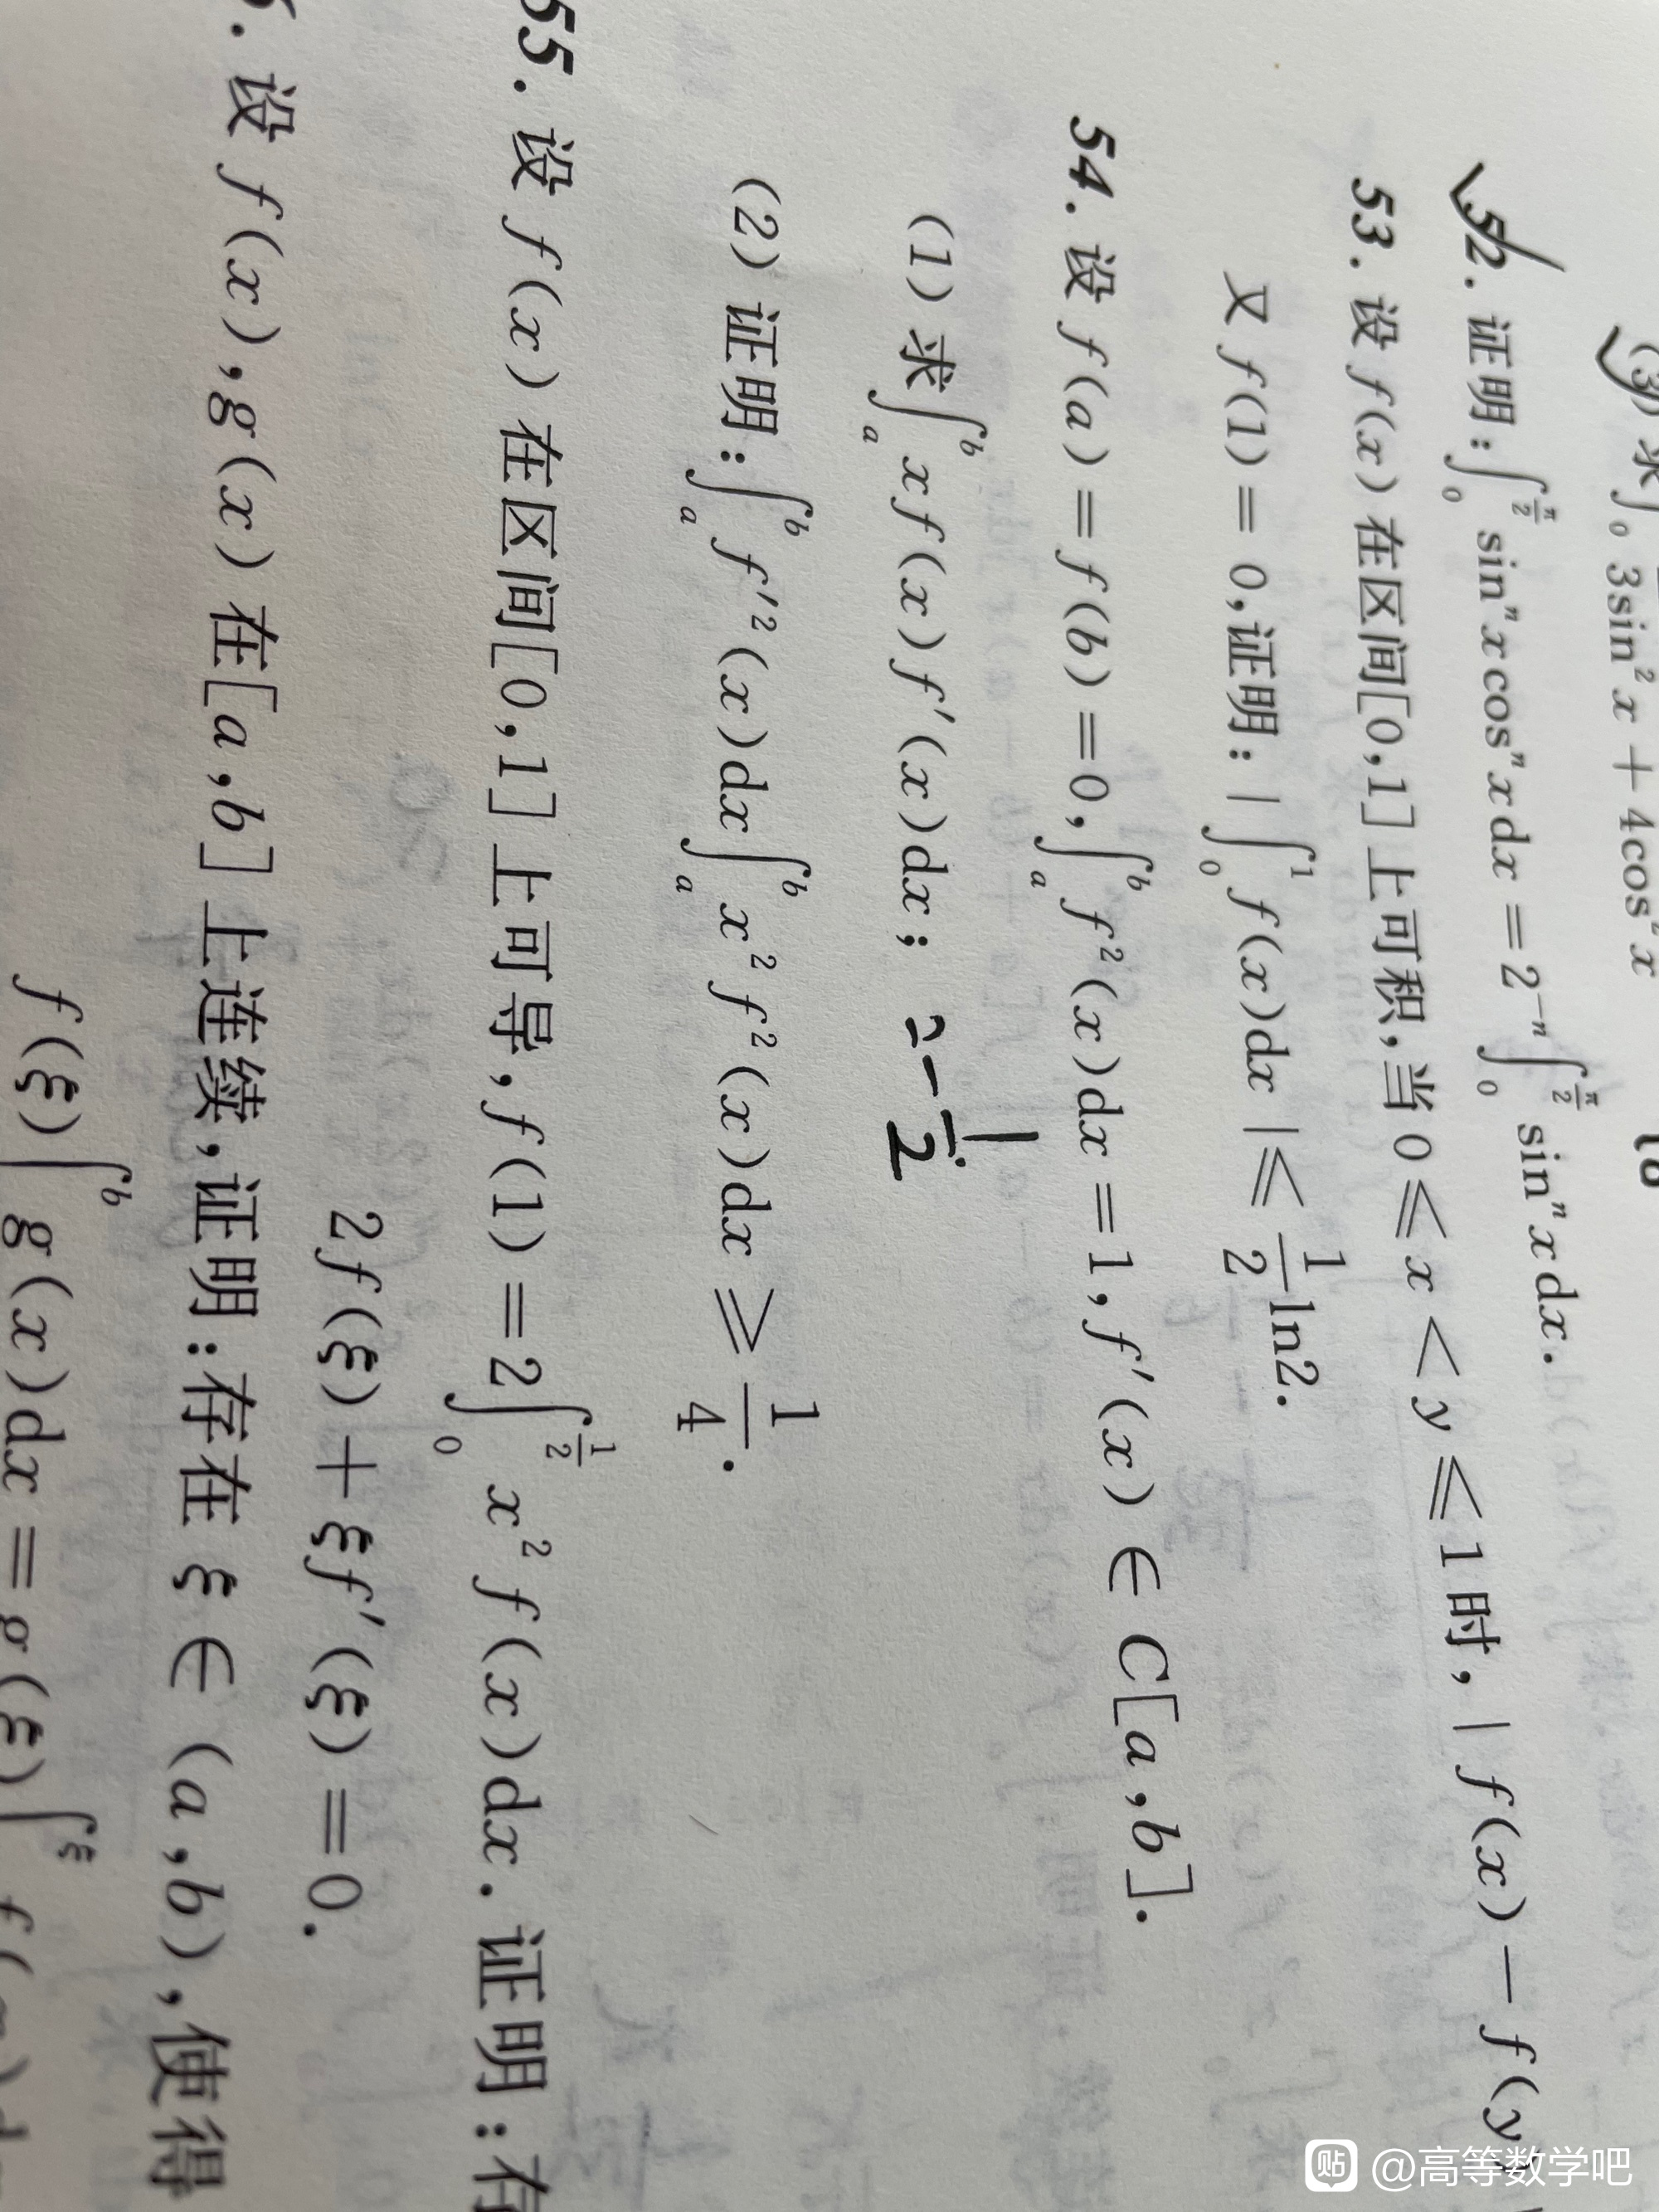 (3) 求∫₀ 3sin²x + 4cos²x
52. 证明:∫₀^{π/2} sinⁿx cosⁿx dx = 2⁻ⁿ∫₀^{π/2} sinⁿx dx.
53. 设 f(x) 在区间[0,1]上可积,当 0 ≤ x < y ≤ 1 时, | f(x) − f(y
又 f(1) = 0,证明: | ∫₀¹ f(x)dx | ≤ \frac{1}{2}ln2.
54. 设 f(a) = f(b) = 0, ∫ₐᵇ f²(x)dx = 1, f′(x) ∈ C[a,b].
(1) 求∫ₐᵇ xf(x)f′(x)dx; = −\frac{1}{2}
(2) 证明:∫ₐᵇ f′²(x)dx∫ₐᵇ x²f²(x)dx ≥ \frac{1}{4}.
55. 设 f(x) 在区间[0,1]上可导, f(1) = 2∫₀^{1/2} x²f(x)dx. 证明:存
2f(ξ) + ξf′(ξ) = 0.
. 设 f(x),g(x) 在[a,b]上连续,证明:存在 ξ ∈ (a,b),使得
f(ξ)∫ᵇ g(x)dx = g(ξ)∫^ξ f(
贴 @高等数学吧